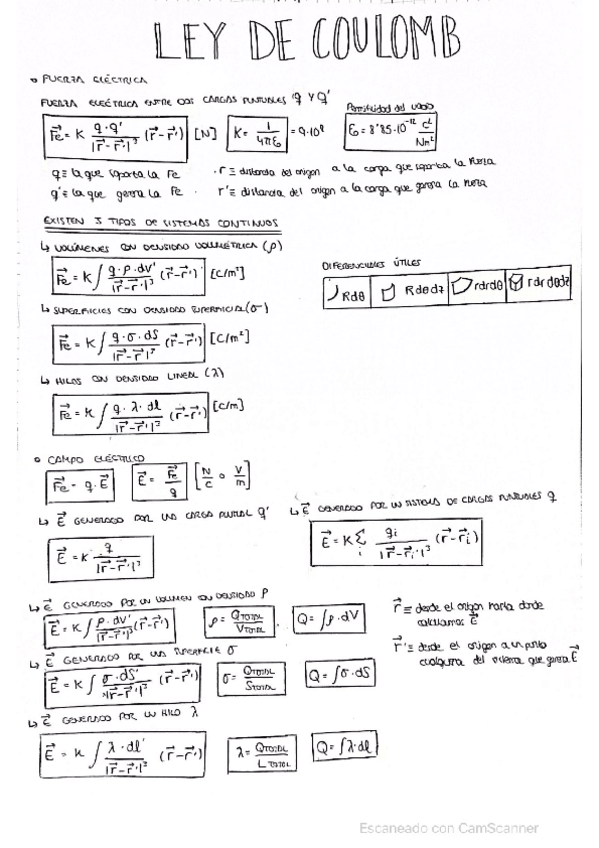 LEY DE COULOMB
o FUERZA ELÉCTRICA
FUERZA ELÉCTRICA ENTRE DOS CARGAS PUNTUALES q Y q'
Permitividad del vacío
Fe = K q·q' / |r-r'|³ (r-r') [N] K = 1/4πε₀ = 9·10⁹ ε₀ = 8'85·10⁻¹² C²/Nm²
q ≡ la que soporta la Fe · r ≡ distancia del origen a la carga que soporta la fuerza
q' ≡ la que genera la Fe · r' ≡ distancia del origen a la carga que genera la fuerza
EXISTEN 3 TIPOS DE SISTEMAS CONTINUOS
↳ VOLÚMENES CON DENSIDAD VOLUMÉTRICA (ρ)
Fe = K ∫ q·ρ·dv' / |r-r'|³ (r-r') [C/m³]
DIFERENCIALES ÚTILES
Rdθ Rdθdz rdrdθ rdrdθdz
↳ SUPERFICIES CON DENSIDAD SUPERFICIAL (σ)
Fe = K ∫ q·σ·dS / |r-r'|³ (r-r') [C/m²]
↳ HILOS CON DENSIDAD LINEAL (λ)
Fe = K ∫ q·λ·dl / |r-r'|³ (r-r') [C/m]
o CAMPO ELÉCTRICO
Fe = q·E E = Fe/q [N/C o V/m]
↳ E GENERADO POR UNA CARGA PUNTUAL q'
E = K q / |r-r'|³
↳ E GENERADO POR UN SISTEMA DE CARGAS PUNTUALES q
E = K Σi qi / |r-r'i|³ (r-ri)
↳ E GENERADO POR UN VOLUMEN CON DENSIDAD ρ
E = K ∫ ρ·dV' / |r-r'|³ (r-r') ρ = QTOTAL/VTOTAL Q = ∫ρ·dV
r ≡ desde el origen hasta donde
calculamos E
r' ≡ desde el origen a un punto
cualquiera del sistema que genera E
↳ E GENERADO POR UNA SUPERFICIE σ
E = K ∫ σ·dS' / |r-r'|³ (r-r') σ = QTOTAL/STOTAL Q = ∫σ·dS
↳ E GENERADO POR UN HILO λ
E = K ∫ λ·dl' / |r-r'|³ (r-r') λ = QTOTAL/LTOTAL Q = ∫λ·dl
Escaneado con CamScanner